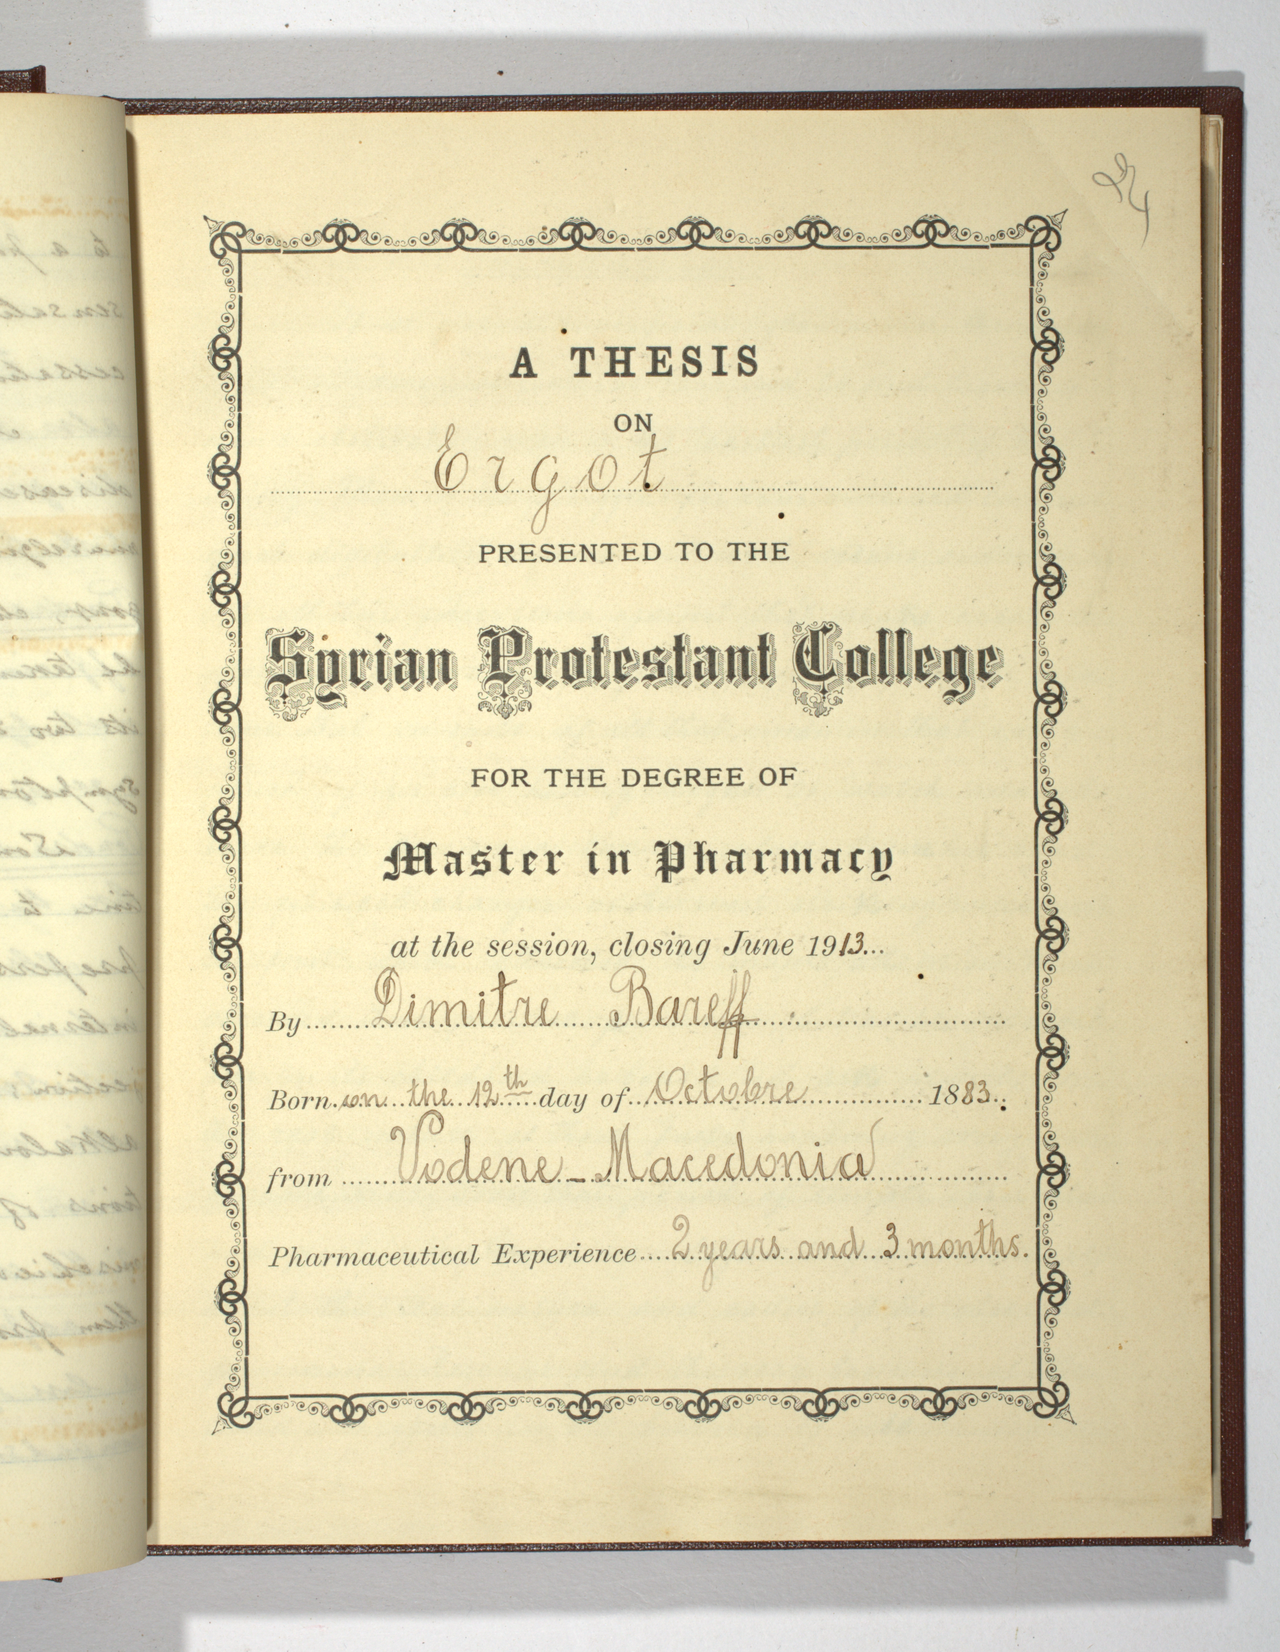 A THESIS
ON
Ergot
PRESENTED TO THE
Syrian Protestant College
FOR THE DEGREE OF
Master in Pharmacy
at the session, closing June 1913...
By Dimitre Bareff
Born on the 12th day of Octobre 1883.
from Vodene - Macedonia
Pharmaceutical Experience 2 years and 3 months.